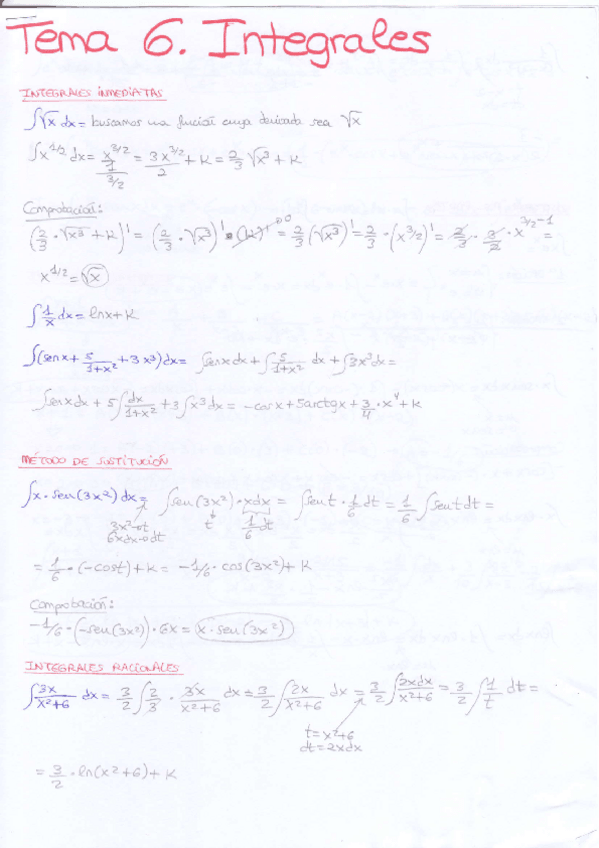 Tema 6. Integrales
INTEGRALES INMEDIATAS
∫√x dx = buscamos una función cuya derivada sea √x
∫x^1/2 dx = x^3/2 / 1 / 3/2 = 3x^3/2 / 2 + K = 2/3 √x³ + K
Comprobación:
(2/3 · √x³ + K)' = (2/3 · √x³)' + (K)'→0 = 2/3 (√x³)' = 2/3 · (x^3/2)' = 2/3 · 3/2 · x^3/2-1 =
x^1/2 = √x
∫1/x dx = lnx + K
∫(senx + 5/1+x² + 3x³)dx = ∫senx dx + ∫5/1+x² dx + ∫3x³dx =
∫senx dx + 5∫dx/1+x² + 3∫x³dx = -cosx + 5arctgx + 3/4 · x⁴ + K
MÉTODO DE SUSTITUCIÓN
∫x · sen(3x²) dx = ∫sen(3x²) · xdx = ∫sent · 1/6 dt = 1/6 ∫sent dt =
3x²→t
6xdx→dt
t
1/6 dt
= 1/6 · (-cost) + K = -1/6 · cos(3x²) + K
Comprobación:
-1/6 · (-sen(3x²)) · 6x = x · sen(3x²)
INTEGRALES RACIONALES
∫3x/x²+6 dx = 3/2 ∫2/3 · 3x/x²+6 dx = 3/2 ∫2x/x²+6 dx = 3/2 ∫2xdx/x²+6 = 3/2 ∫1/t dt =
t = x²+6
dt = 2xdx
= 3/2 · ln(x²+6) + K